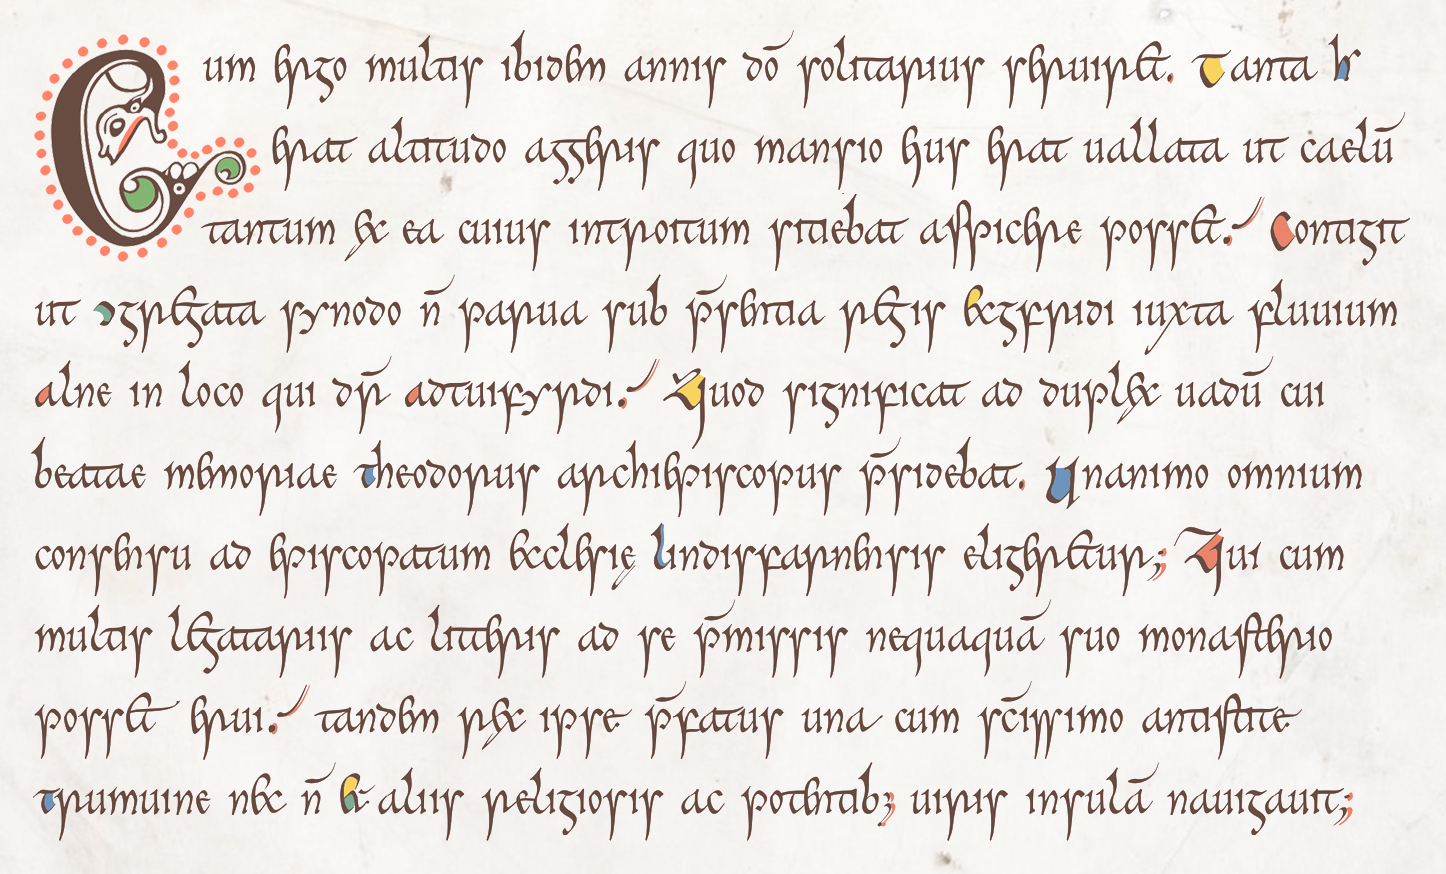 Cum ergo multis ibidem annis dō solitarius seruiret. Tanta ħ
erat altitudo aggeris quo mansio eius erat uallata ut caelū
tantum ex ea cuius introitum sitiebat aspicere posset. Contigit
ut ↄgregata synodo n̄ parua sub p̄sentia regis ecgfridi iuxta fluuium
alne in loco qui dr̄ adtuifyrdi. Quod significat ad duplex uadū cui
beatae memoriae theodorus archiepiscopus p̄sidebat. Unanimo omnium
consensu ad episcopatum ecclesię lindisfarnensis eligeretur; Qui cum
multis legatariis ac litteris ad se p̄missis nequaquā suo monasterio
posset erui. tandem rex ipse p̄fatus una cum sc̄issimo antistite
trumuine nec n̄ et aliis religiosis ac potentib; uiris insulā nauigauit;